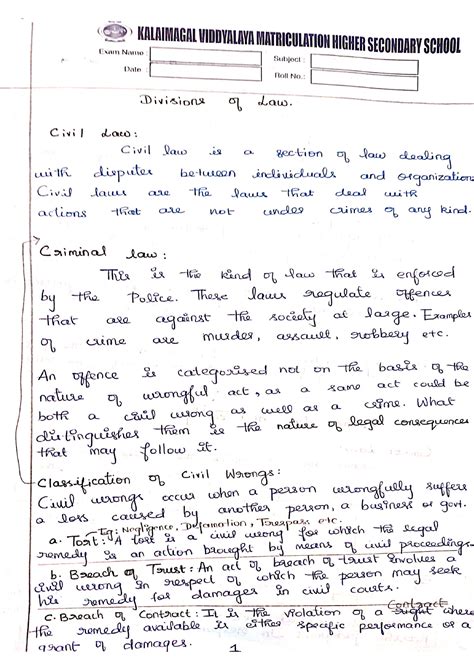 KALAIMAGAL VIDDYALAYA MATRICULATION HIGHER SECONDARY SCHOOL
Exam Name :
Subject :
Date :
Roll No.:
Divisions of Law.
Civil Law:
Civil law is a section of law dealing
with disputes between individuals and organizations
Civil laws are the laws that deal with
actions that are not under crimes of any kind.
Criminal law:
This is the kind of law that is enforced
by the Police. These laws regulate offences
that are against the society at large. Examples
of crime are murder, assault, robbery etc.
An offence is categorised not on the basis of the
nature of wrongful act, as a same act could be
both a civil wrong as well as a crime. What
distinguishes them is the nature of legal consequences
that may follow it.
Classification of Civil Wrongs:
Civil wrongs occur when a person wrongfully suffers
a loss caused by another person, a business or govt.
Eg: Negligence, Defamation, Trespass etc.
a. Tort: A tort is a civil wrong for which the legal
remedy is an action brought by means of civil proceedings.
b. Breach of Trust: An act of breach of trust involves a
civil wrong in respect of which the person may seek
his remedy for damages in civil courts.
Contract
c. Breach of Contract: It is the violation of a right where
the remedy available is either specific performance or a
grant of damages.
1